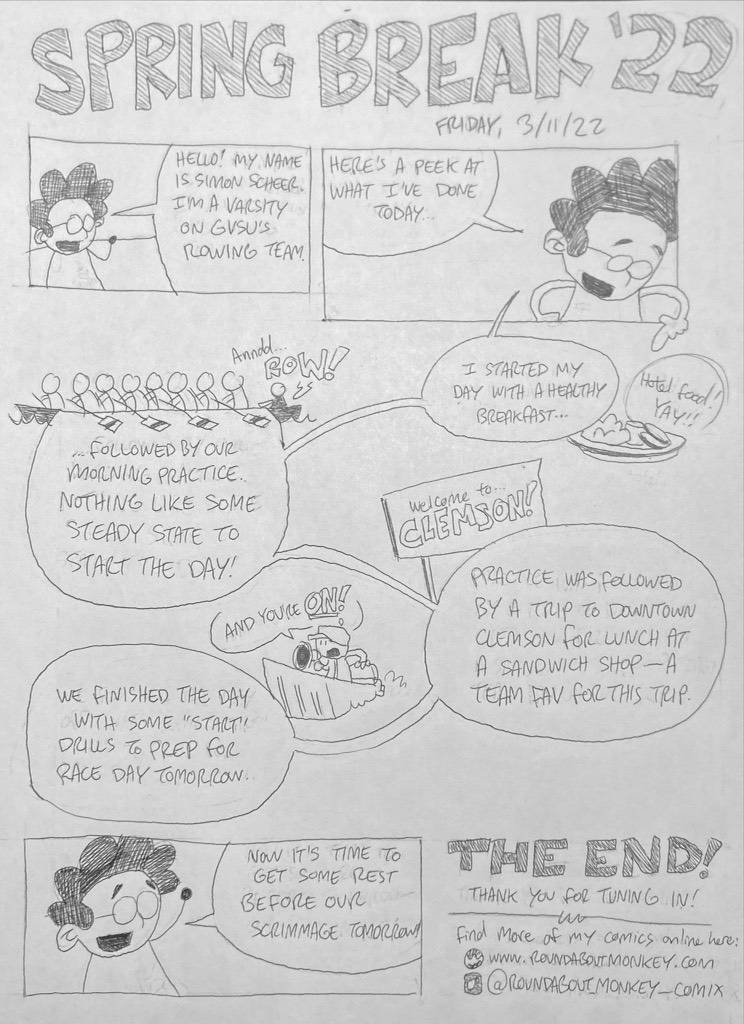 SPRING BREAK '22
FRIDAY, 3/11/22
HELLO! MY NAME
IS SIMON SCHEER.
I'M A VARSITY
ON GVSU'S
ROWING TEAM.
HERE'S A PEEK AT
WHAT I'VE DONE
TODAY...
I STARTED MY
DAY WITH A HEALTHY
BREAKFAST...
Hotel food!
YAY!!
Anndd...
ROW!
...FOLLOWED BY OUR
MORNING PRACTICE.
NOTHING LIKE SOME
STEADY STATE TO
START THE DAY!
Welcome to...
CLEMSON!
PRACTICE WAS FOLLOWED
BY A TRIP TO DOWNTOWN
CLEMSON FOR LUNCH AT
A SANDWICH SHOP—A
TEAM FAV FOR THIS TRIP.
AND YOU'RE ON!
WE FINISHED THE DAY
WITH SOME "START"
DRILLS TO PREP FOR
RACE DAY TOMORROW.
NOW IT'S TIME TO
GET SOME REST
BEFORE OUR
SCRIMMAGE TOMORROW!
THE END!
THANK YOU FOR TUNING IN!
Find more of my comics online here:
WWW.ROUNDABOUTMONKEY.COM
@ROUNDABOUTMONKEY_COMIX